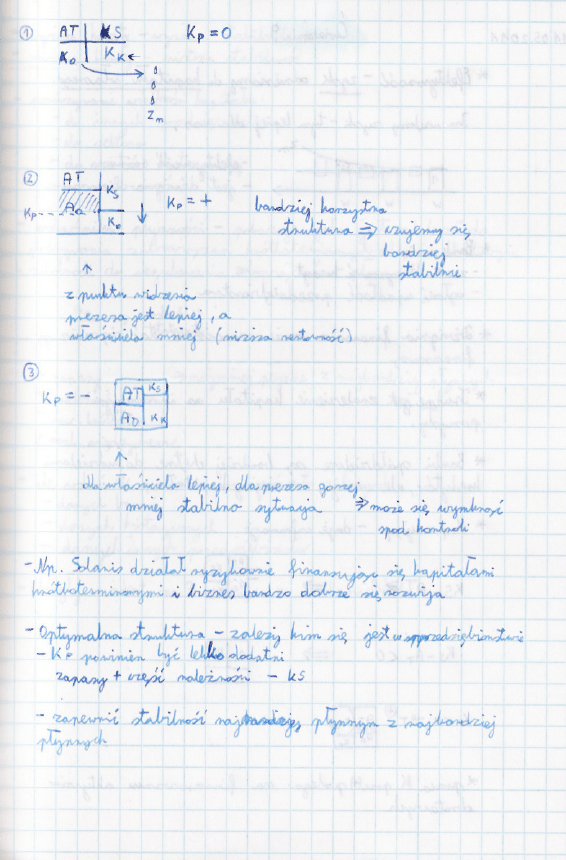 ① AT KS Kp = 0
AO KK
Zm
② AT
KS
Kp AO Kp = + bardziej korzystna
KD struktura ⇒ czujemy się
bardziej
stabilni
↑
z punktu widzenia
prezesa jest lepiej, a
właściciela mniej (niższa rentowność)
③
Kp = - AT KS
AO KK
↑
dla właściciela lepiej, dla prezesa gorzej
mniej stabilna sytuacja ⇒ może się wymknąć
spod kontroli
- Np. Solaris działał ryzykownie finansując się kapitałami
krótkoterminowymi i biznes bardzo dobrze się rozwija
- Optymalna struktura - zależy kim się jest w przedsiębiorstwie
- Kp powinien być lekko dodatni
zapasy + część należności - KS
- zapewnić stabilność płynnym z najbardziej
płynnych